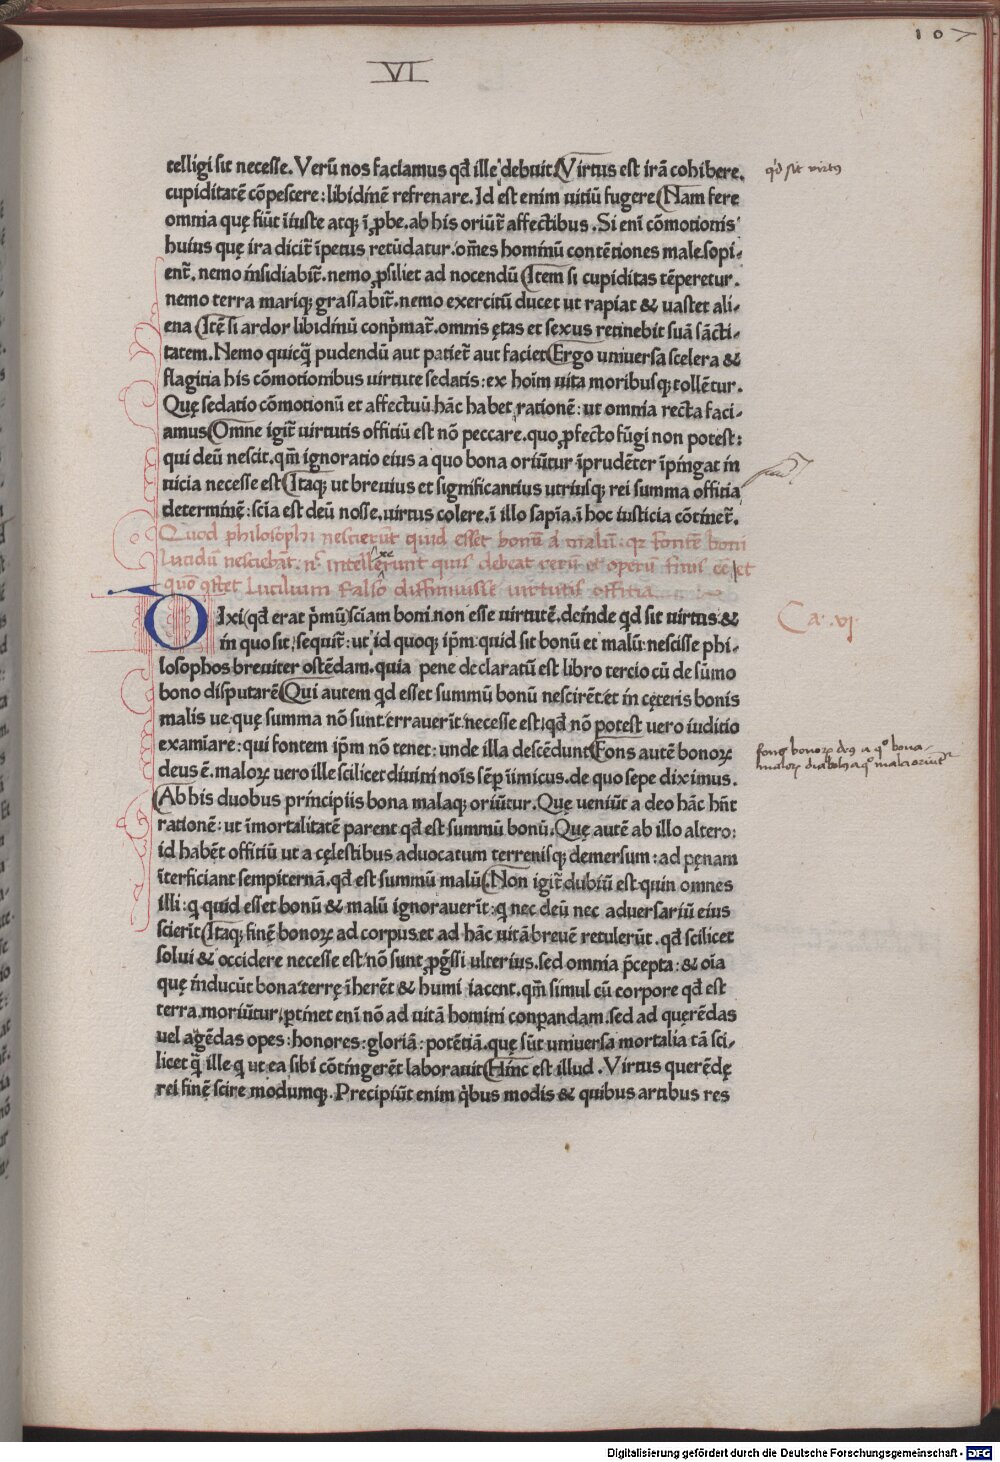 107
VI
telligi sit necesse. Verū nos faciamus qđ ille debuit. Virtus est irā cohibere.
qđ sit virtus
cupiditatē cōpescere: libidinē refrenare. Id est enim uitiū fugere Nam fere
omnia quę fiūt īiuste atq; īꝓbe. ab his oriūt̃ affectibus. Si eni cōmotionis
huius quę ira dicit̃ īpetus retūdatur. om̄es hominū contētiones male sopi-
ent̃. nemo insidiabit̃. nemo ꝓsiliet ad nocendū Item si cupiditas tēperetur.
nemo terra mariq; grassabit̃. nemo exercitū ducet ut rapiat & uastet ali-
ena Itē si ardor libidinū conp̄mat̃. omnis ętas et sexus retinebit suā sācti-
tatem. Nemo quicq̄ pudendū aut patiet̃ aut faciet Ergo uniuersa scelera &
flagitia his cōmotionibus uirtute sedatis: ex hoīm uita moribusq; tollētur.
Quę sedatio cōmotionū et affectuū hāc habet rationē: ut omnia recta faci-
amus Omne igit̃ uirtutis offitiū est nō peccare. quo ꝓfecto fūgi non potest:
qui deū nescit. qm̄ ignoratio eius a quo bona oriūtur īprudēter īpingat in
uicia necesse est Itaq; ut breuius et significantius utriusq; rei summa offitia
determinē: scīa est deū nosse. uirtus colere. ī illo sapīa. ī hoc iusticia cōtinet̃.
Quod philosophi nescierūt quid esset bonū & malū: qꝛ fontē boni
Ca. vj
Dixi (qđ erat p̄mū) sciam boni non esse uirtutē. deinde qđ sit uirtus &
in quo sit. sequit̃: ut id quoq; ip̄m quid sit bonū et malū nescisse phi-
losophos breuiter ostēdam. quia pene declaratū est libro tercio cū de sūmo
bono disputarē Qui autem qđ esset summū bonū nescirēt. et in cęteris bonis
malis ue quę summa nō sunt errauerīt necesse est. qđ nō potest uero iuditio
examīare: qui fontem ip̄m nō tenet: unde illa descēdunt Fons autē bonoꝝ
fons bonoꝝ deus a qo bona
deus ē. maloꝝ uero ille scilicet diuini noīs sēp īimicus. de quo sepe diximus.
Ab his duobus principiis bona malaq; oriūtur. Quę ueniūt a deo hāc hn̄t
rationē: ut īmortalitatē parent qđ est summū bonū. Quę autē ab illo altero:
id habēt offitiū ut a cęlestibus aduocatum terrenisq; demersum: ad pęnam
īterficiant sempiternā. qđ est summū malū. Non igit̃ dubiū est quin omnes
illi: q quid esset bonū & malū ignorauerīt: q nec deū nec aduersariū eius
scierīt Itaq; finē bonoꝝ ad corpus et ad hāc uitā breuē retulerūt. qđ scilicet
solui & occidere necesse est nō sunt ꝓgssi ulterius. sed omnia p̄cepta: & oīa
quę inducūt bona terrę īherēt & humi iacent. qm̄ simul cū corpore qđ est
terra. moriūtur. ꝑtinet eni nō ad uitā homini conꝑandam. sed ad querēdas
uel agēdas opes: honores: gloriā: potētiā. quę sūt uniuersa mortalia tā sci-
licet q̄ ille q ut ea sibi cōtingerēt laborauit Hinc est illud. Virtus querēdę
rei finē scire modumq;. Precipiūt enim qbus modis & quibus artibus res
Digitalisierung gefördert durch die Deutsche Forschungsgemeinschaft - DFG